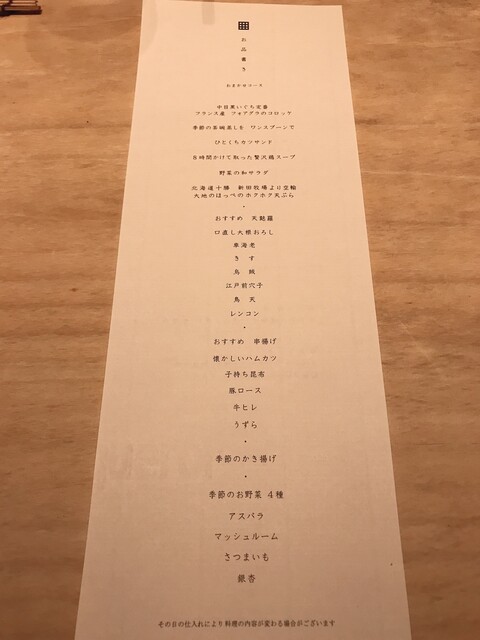 お品書き
おまかせコース
中目黒いぐち定番
フランス産 フォアグラのコロッケ
季節の茶碗蒸しを ワンスプーンで
ひとくちカツサンド
8時間かけて取った贅沢鶏スープ
野菜の和サラダ
北海道十勝 新田牧場より空輸
大地のほっぺのホクホク天ぷら
・
おすすめ 天麩羅
口直し大根おろし
車海老
きす
烏賊
江戸前穴子
鳥天
レンコン
・
おすすめ 串揚げ
懐かしいハムカツ
子持ち昆布
豚ロース
牛ヒレ
うずら
・
季節のかき揚げ
・
季節のお野菜 4種
アスパラ
マッシュルーム
さつまいも
銀杏
その日の仕入れにより料理の内容が変わる場合がございます